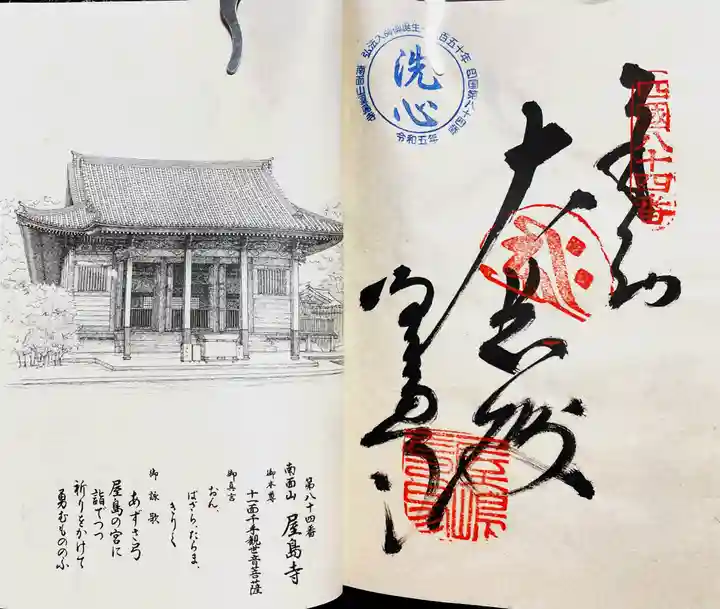 四國八十四番
奉納
大悲殿
屋島寺
弘法大師御誕生
百五十年
四国第八十四番
南面山屋島寺
洗心
令和五年
第八十四番
南面山 屋島寺
御本尊
十一面千手観世音菩薩
御真言
おん、
ばざら、たらま、
きりく
御詠歌
あずさ弓
屋島の宮に
詣でつつ
祈りをかけて
勇むもののふ